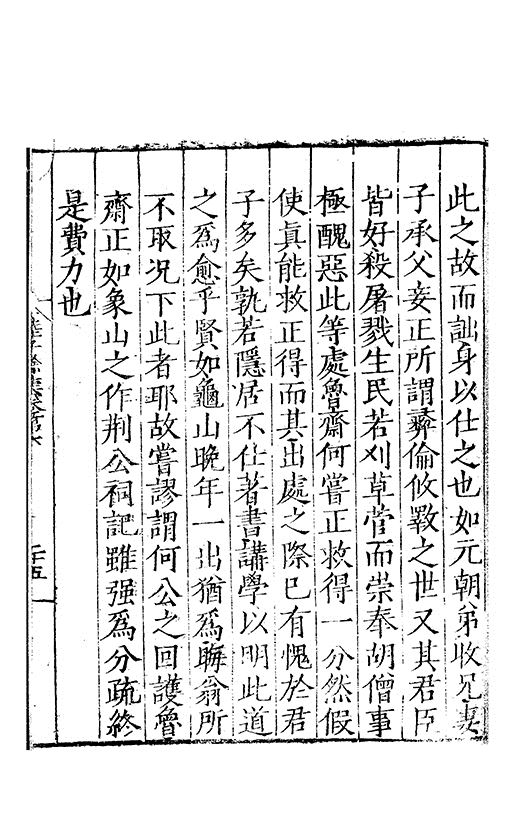 此之故而詘身以仕之也如元朝弟收兄妻
子承父妾正所謂彞倫攸斁之世又其君臣
皆好殺屠戮生民若刈草菅而崇奉胡僧事
極醜惡此等處魯齋何嘗正救得一分然假
使眞能救正得而其出處之際已有愧於君
子多矣孰若隱居不仕著書講學以明此道
之爲愈乎賢如龜山晚年一出猶爲晦翁所
不取况下此者耶故嘗謬謂何公之回護魯
齋正如象山之作荆公祠記雖强爲分疏終
是費力也
二十五